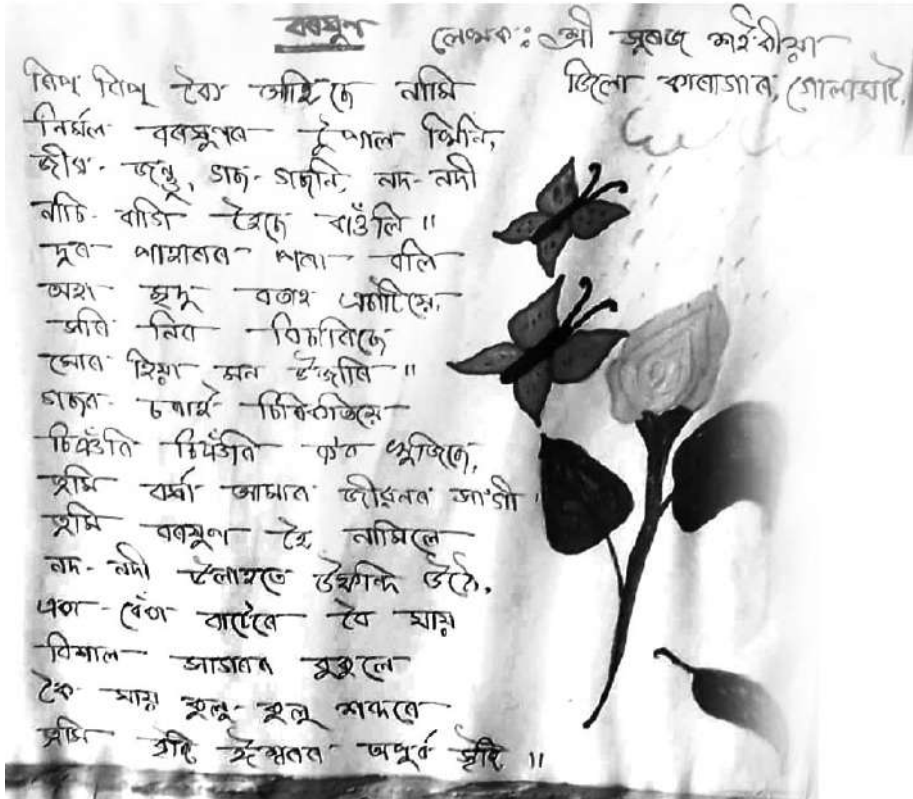 বৰষুণ
লেখক : শ্ৰী সুৰজ শইকীয়া
জিলা কাৰাগাৰ, গোলাঘাট,
ৰিপ্ ৰিপ্ কৈ আহিছে নামি
নিৰ্মল বৰষুণৰ টুপাল খিনি,
জীৱ-জন্তু, গছ-গছনি, নদ-নদী
নাচি-বাগি হৈছে বাউলি ॥
দূৰ পাহাৰৰ পৰা বলি
অহা মৃদু বতাহ এচাটিয়ে,
সৰি নিব বিচাৰিছে
মোৰ হিয়া মন উজাৰি ॥
গছৰ চৰাই চিৰিকতিয়ে
চিঞঁৰি চিঞঁৰি ক'ব খুজিছে,
তুমি বৰ্ষা আমাৰ জীৱনৰ লগৰী ।
তুমি বৰষুণ হৈ নামিলে
নদ-নদী উলাহতে উফন্দি উঠে,
একা-বেঁকা বাটেৰে বৈ যায়
বিশাল সাগৰৰ বুকুলে
কৈ যায় কুলু-কুলু শব্দৰে
তুমি হৰি ঈশ্বৰৰ অপূৰ্ব সৃষ্টি ॥